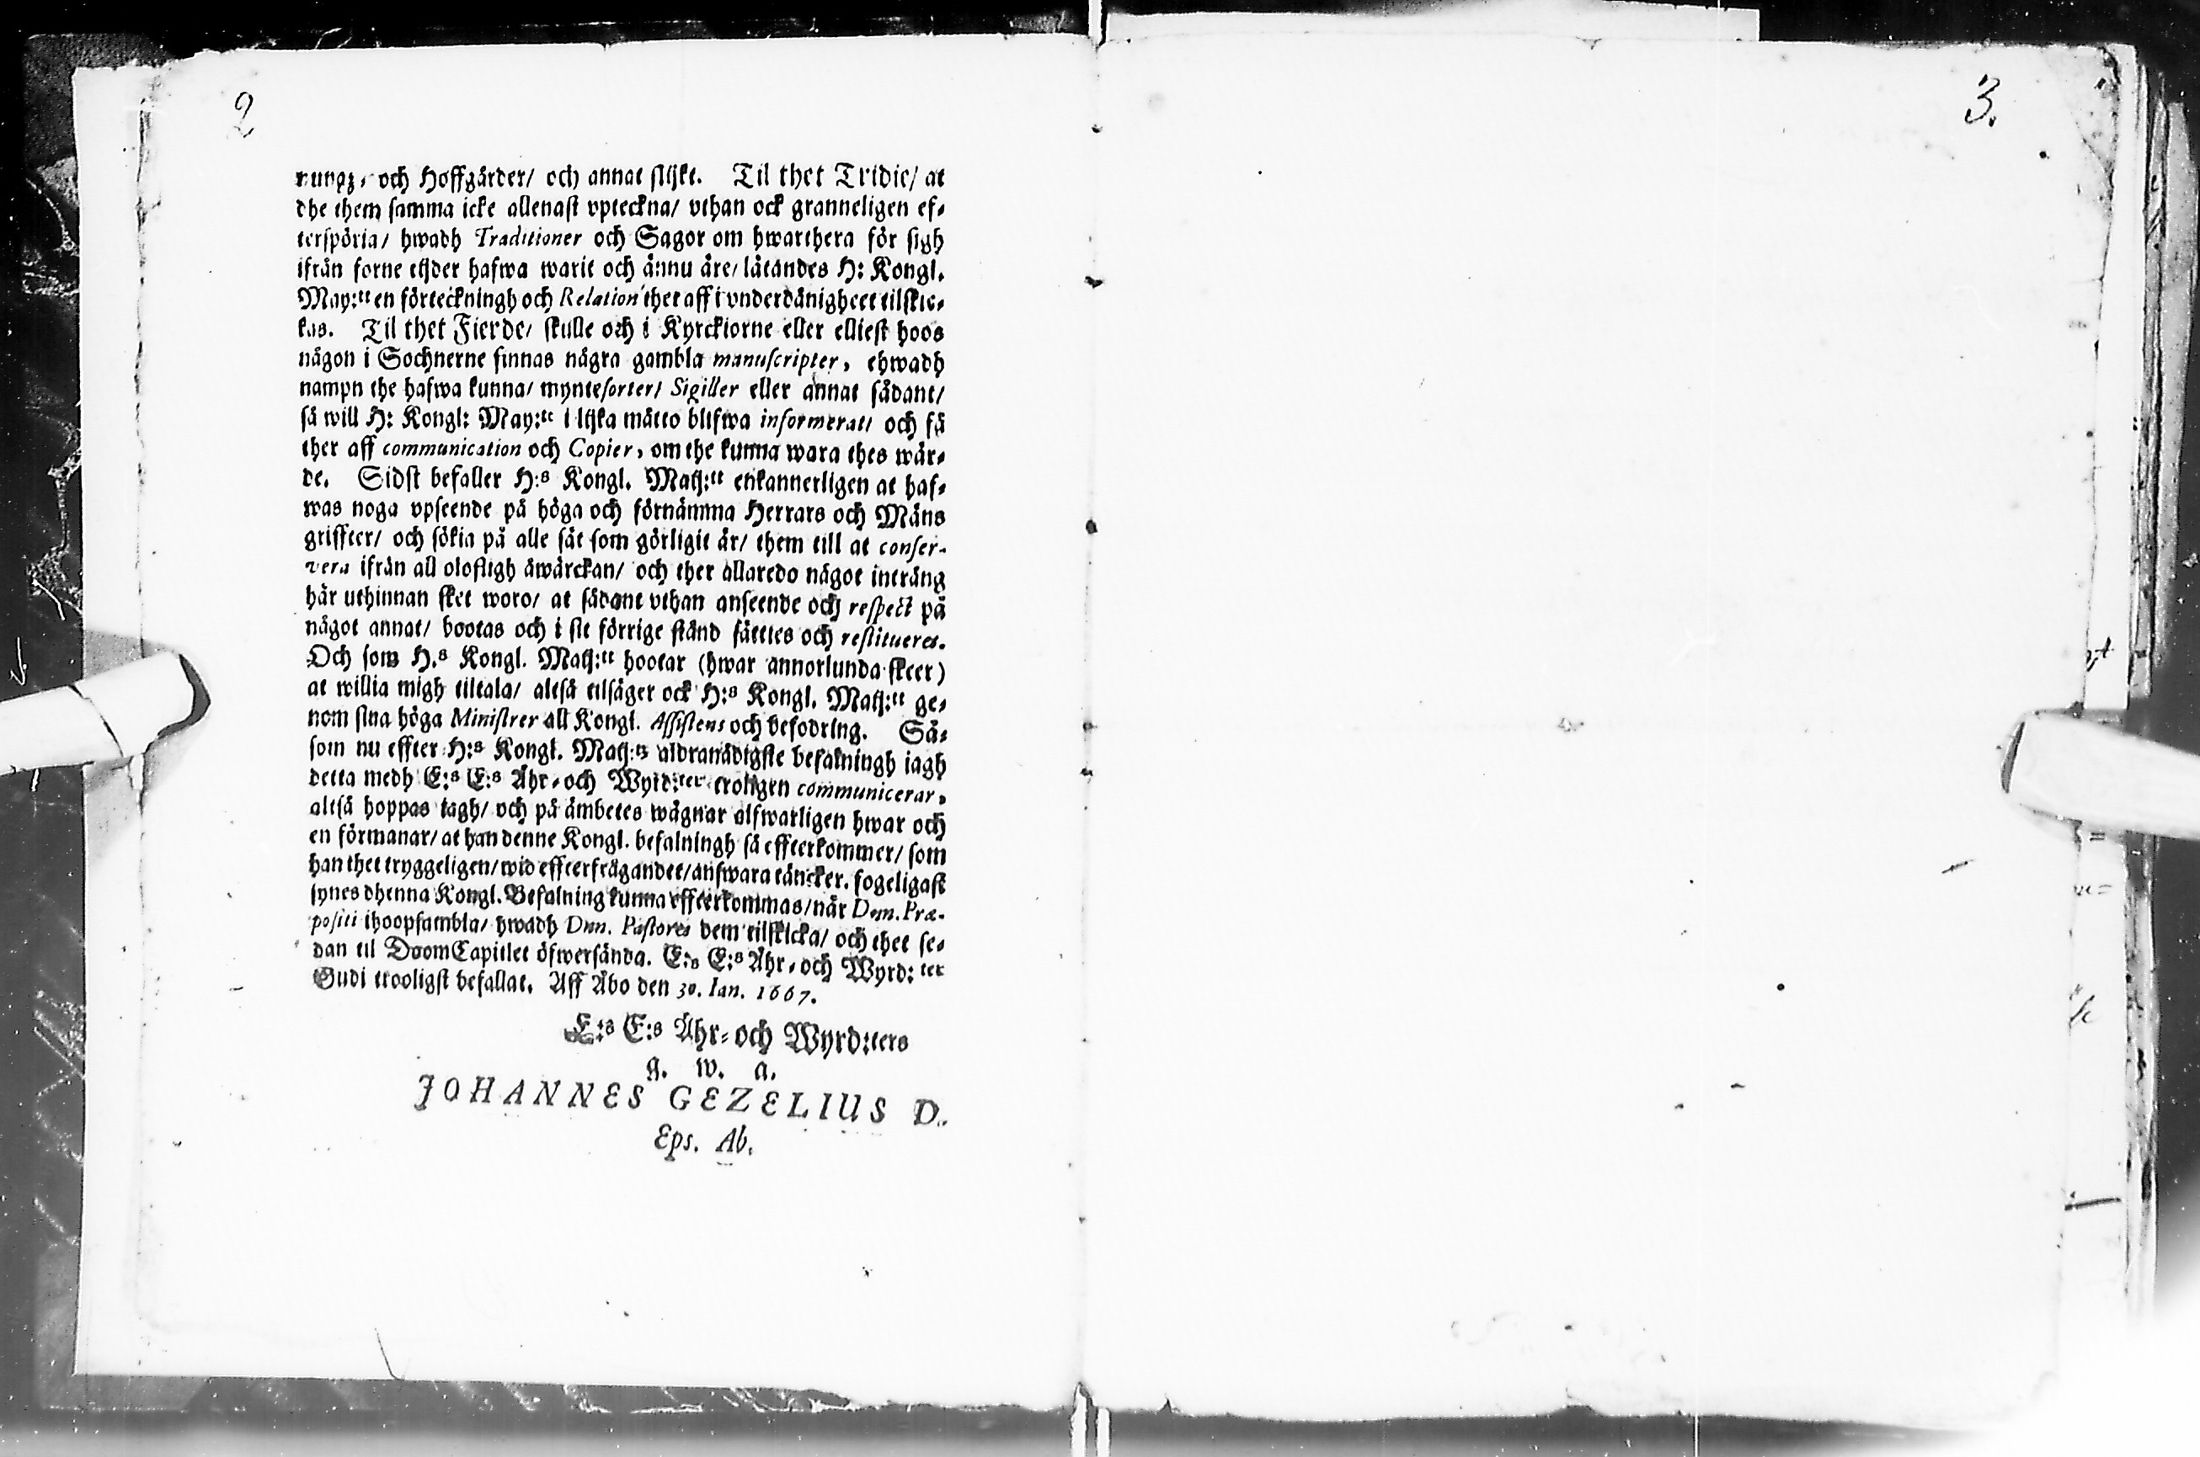 2
nungz- och Hoffgårder/ och annat slijkt. Til thet Tridie/ at
dhe them samma icke allenast vpteckna/ vthan ock granneligen ef-
terspöria/ hwadh Traditioner och Sagor om hwarthera för sigh
ifrån forne tijder hafwa warit och ännu äre/ låtandes H: Kongl.
May:tt en förteckningh och Relation ther aff i vnderdånigheet tilskic-
kas. Til thet Fierde/ skulle och i Kyrckiorne eller elliest hoos
någon i Sochnerne finnas några gambla manuscripter, ehwadh
nampn the hafwa kunna/ myntesorter/ Sigiller eller annat sådant/
så will H: Kongl: May:tt i lijka måtto blifwa informerat/ och få
ther aff communication och Copier, om the kunna wara thes wär-
de. Sidst befaller H:s Kongl. Maij:tt enkannerligen at haf-
was noga vpseende på höga och förnämma Herrars och Mäns
griffter/ och sökia på alle sät som görligit är/ them till at conser-
vera ifrån all olofligh åwärckan/ och ther allaredo något intrång
här uthinnan sket woro/ at sådant vthan anseende och respect på
något annat/ bootas och i sit förrige stånd sättes och restitueres.
Och som H.s Kongl. Maij:tt hootar (hwar annorlunda skeer)
at willia migh tiltala/ altså tilsäger ock H:s Kongl. Maij:tt ge-
nom sina höga Ministrer all Kongl. Assistens och befodring. Så-
som nu effter H:s Kongl. Maij:tz aldranådigste befalningh iagh
detta medh E:s E:s Ähr- och Wyrd:ter troligen communicerar,
altså hoppas iagh/ och på ämbetes wägnar alfwarligen hwar och
en förmanar/ at han denne Kongl. befalningh så effterkommer/ som
han thet tryggeligen/ wid effterfrågandet/ answara täncker. fogeligast
synes dhenna Kongl. Befalning kunna effterkommas/ når Dnn. Præ-
positi ihoopsambla/ hwadh Dnn. Pastores dem tilskicka/ och thet se-
dan til DoomCapitlet öfwersända. E:s E:s Ähr- och Wyrd:ter
Gudi trooligst befallat. Aff Åbo den 30. Ian. 1667.
E:s E:s Ähr- och Wyrd:ters
g. w. a.
JOHANNES GEZELIUS D.
Eps. Ab.
3.